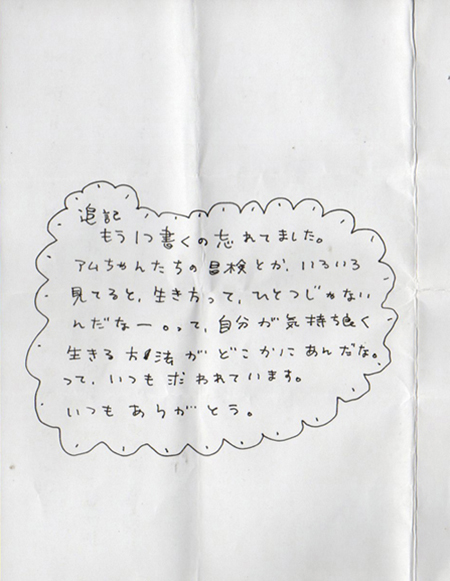 追記
もう1つ書くの忘れてました。
アムちゃんたちの冒検とか、いろいろ
見てると、生き方って、ひとつじゃない
んだなー。って、自分が気持ち良く
生きる方法がどこかにあんだな。
って、いつも求われています。
いつもありがとう。